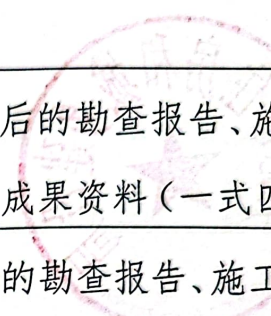 后的勘查报告、施
成果资料（一式四
的勘查报告、施工